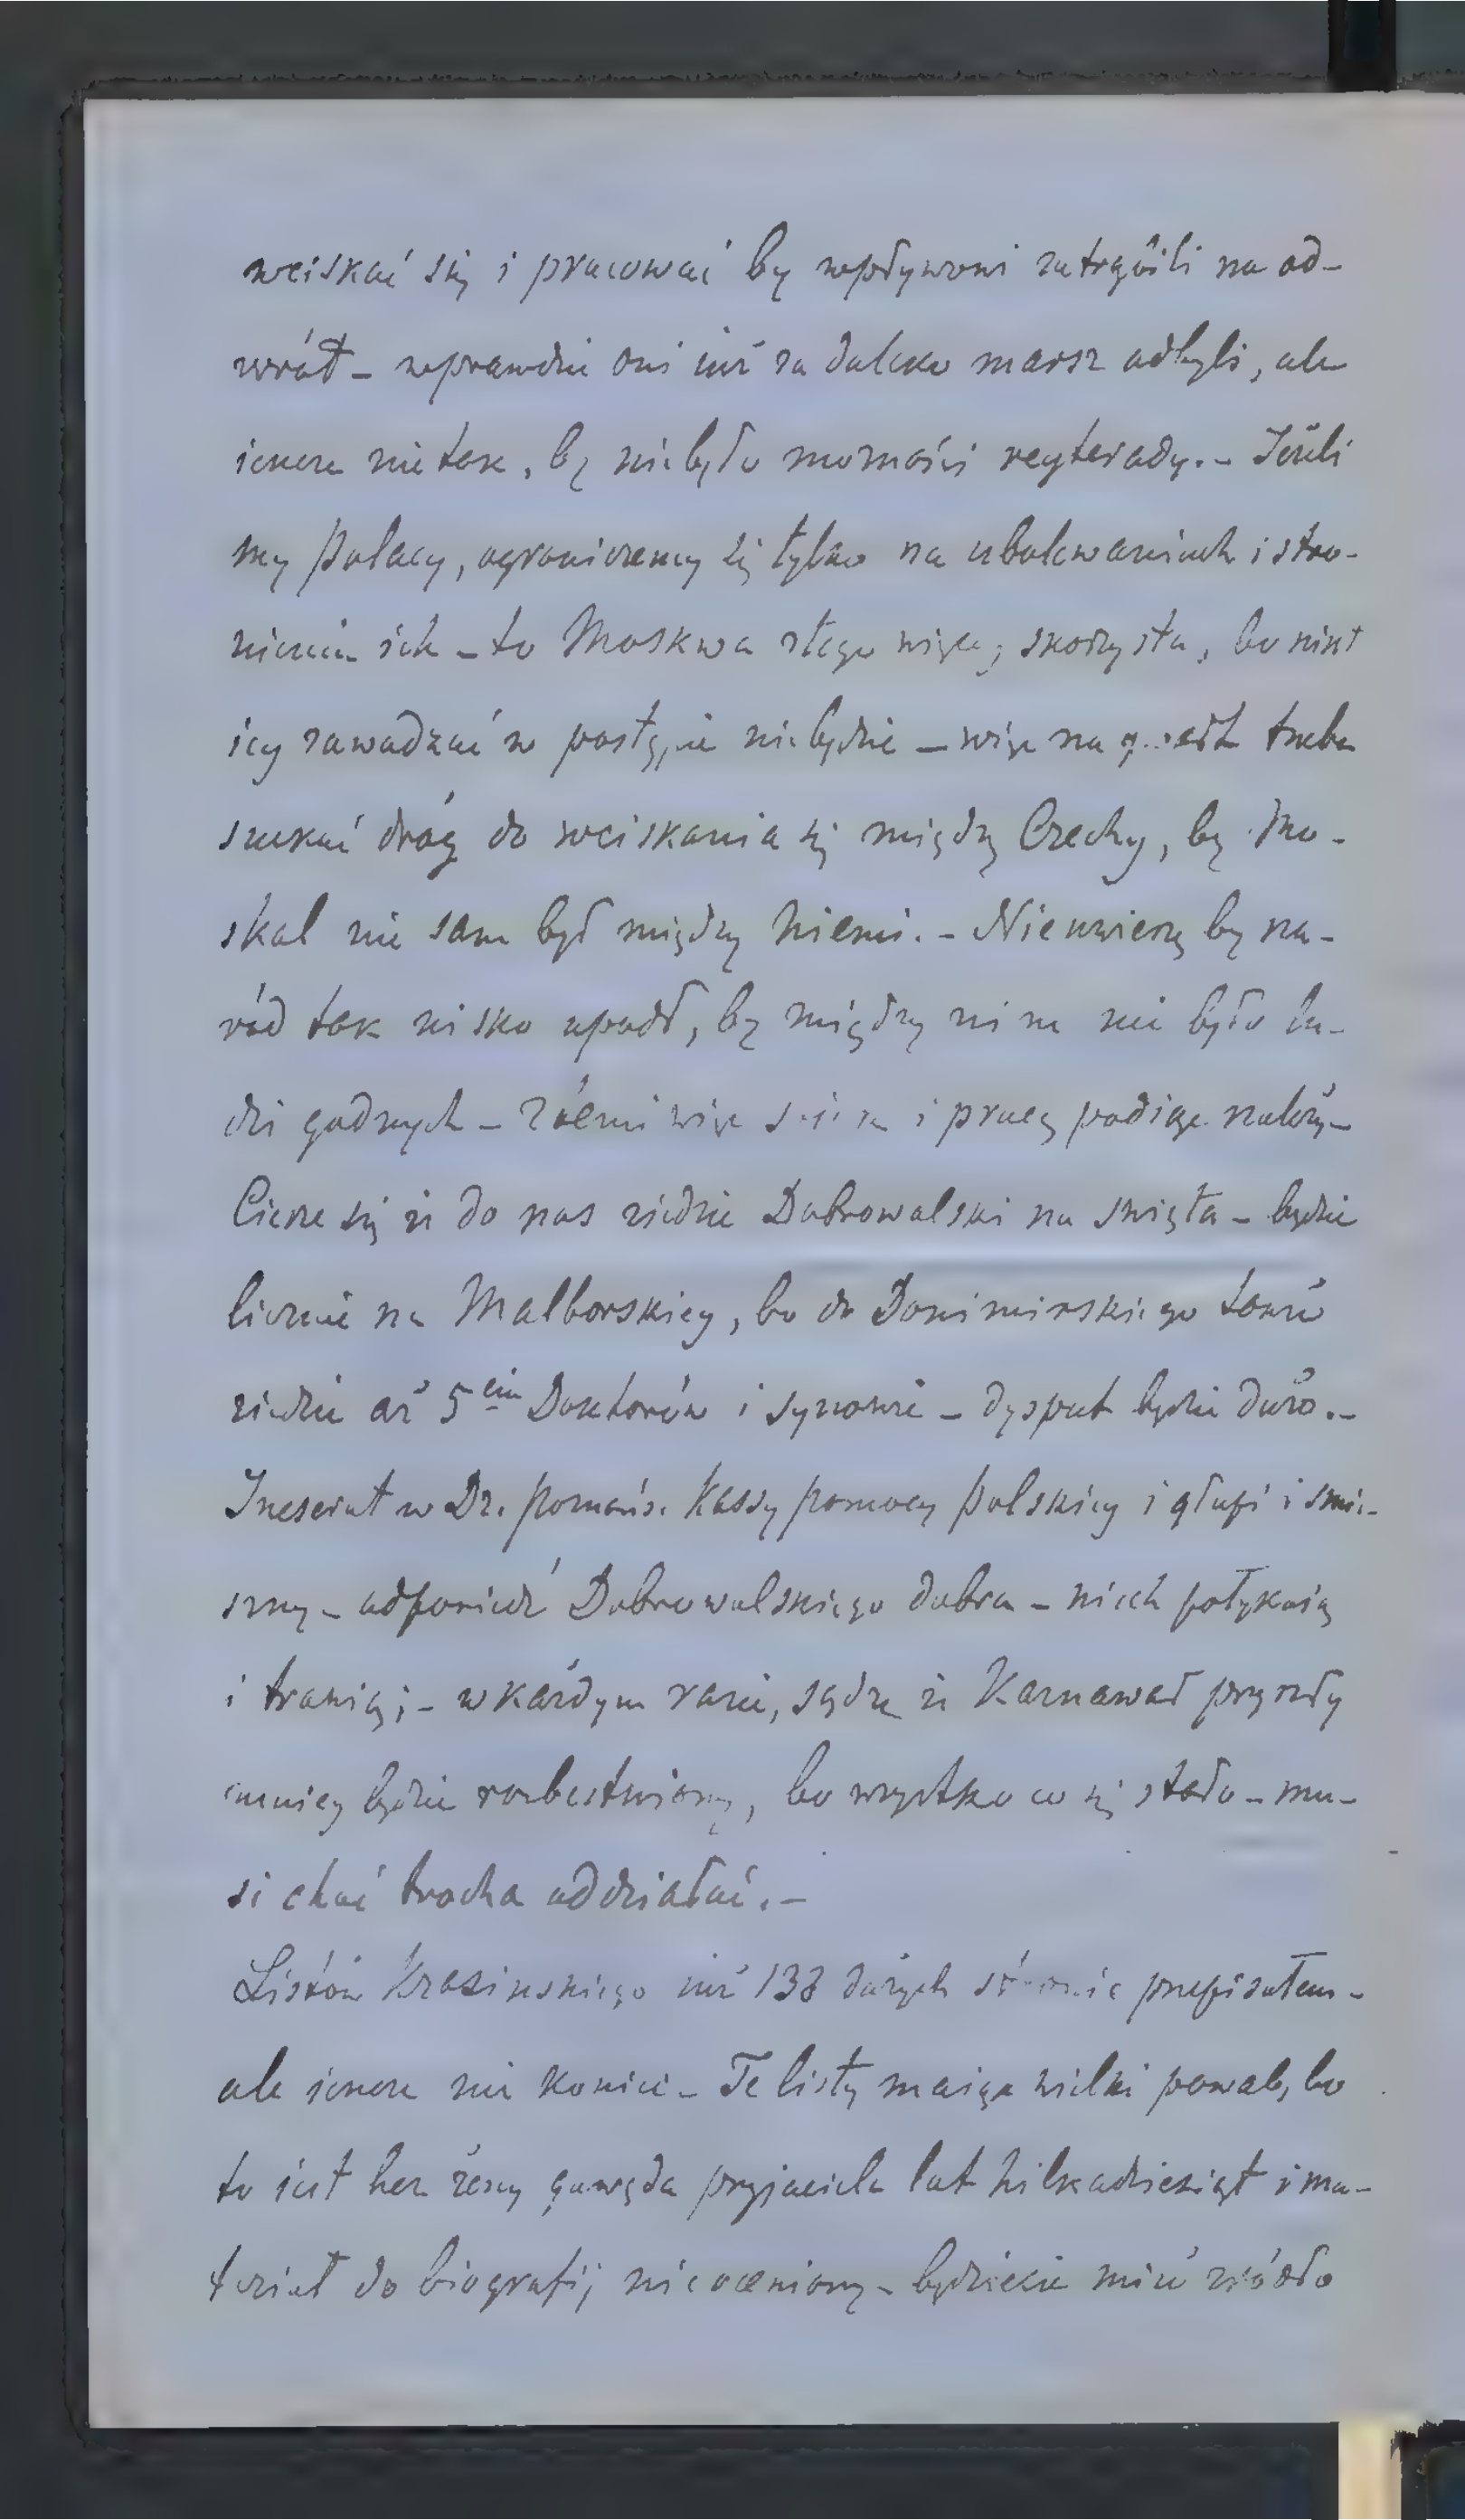 wciskać się i pracować by wpływowi zatrąbili na od-
wrót – wprawdzie oni iuż za daleko marsz odbyli, ale
ieszcze nie tak, by niebyło możności reyterady. – Jeżeli
my Polacy, ograniczemy się tylko na ubolewaniach i stro-
nieniu ich – to Moskwa z tego więcej skorzysta, bo nikt
iey zawadzać w postępie niebędzie – więc na trzeba
szukać dróg do wciskania się między Czechy, by Mo-
skal nie sam był między niemi. – Nieuwierzę by na-
ród tak nisko upadł, by między nim nie było lu-
dzi godnych – więc i pracę podiąć należy –
Cieszę się że do nas ziedzie Dobrowolski na święta – będzie
licznie na Malborskiey, bo do Donimirskiego także
ziedzie aż 5ciu Doktorów i synowie – dysput będzie dużo. –
Inserat w Dz. Poznańs. Kassy pomocy Polskiey i głupi i śmie-
szny – odpowiedź Dobrowolskiego dobra – niech połykaią
i trawią; – w każdym razie, sądzę że Karnawał przyszły
mniey będzie rozbestwiony, bo wszystko co się stało – mu-
si choć trocha oddziałać. –
Listów Krasinskiego iuż 138 dużych stronic przepisałem –
ale ieszcze nie koniec – Te listy maią wielki powab, bo
to iest bez żeny gawęda przyjaciela lat kilkadziesiąt i ma-
teriał do biografij nieoceniony – będziecie mieć źródło